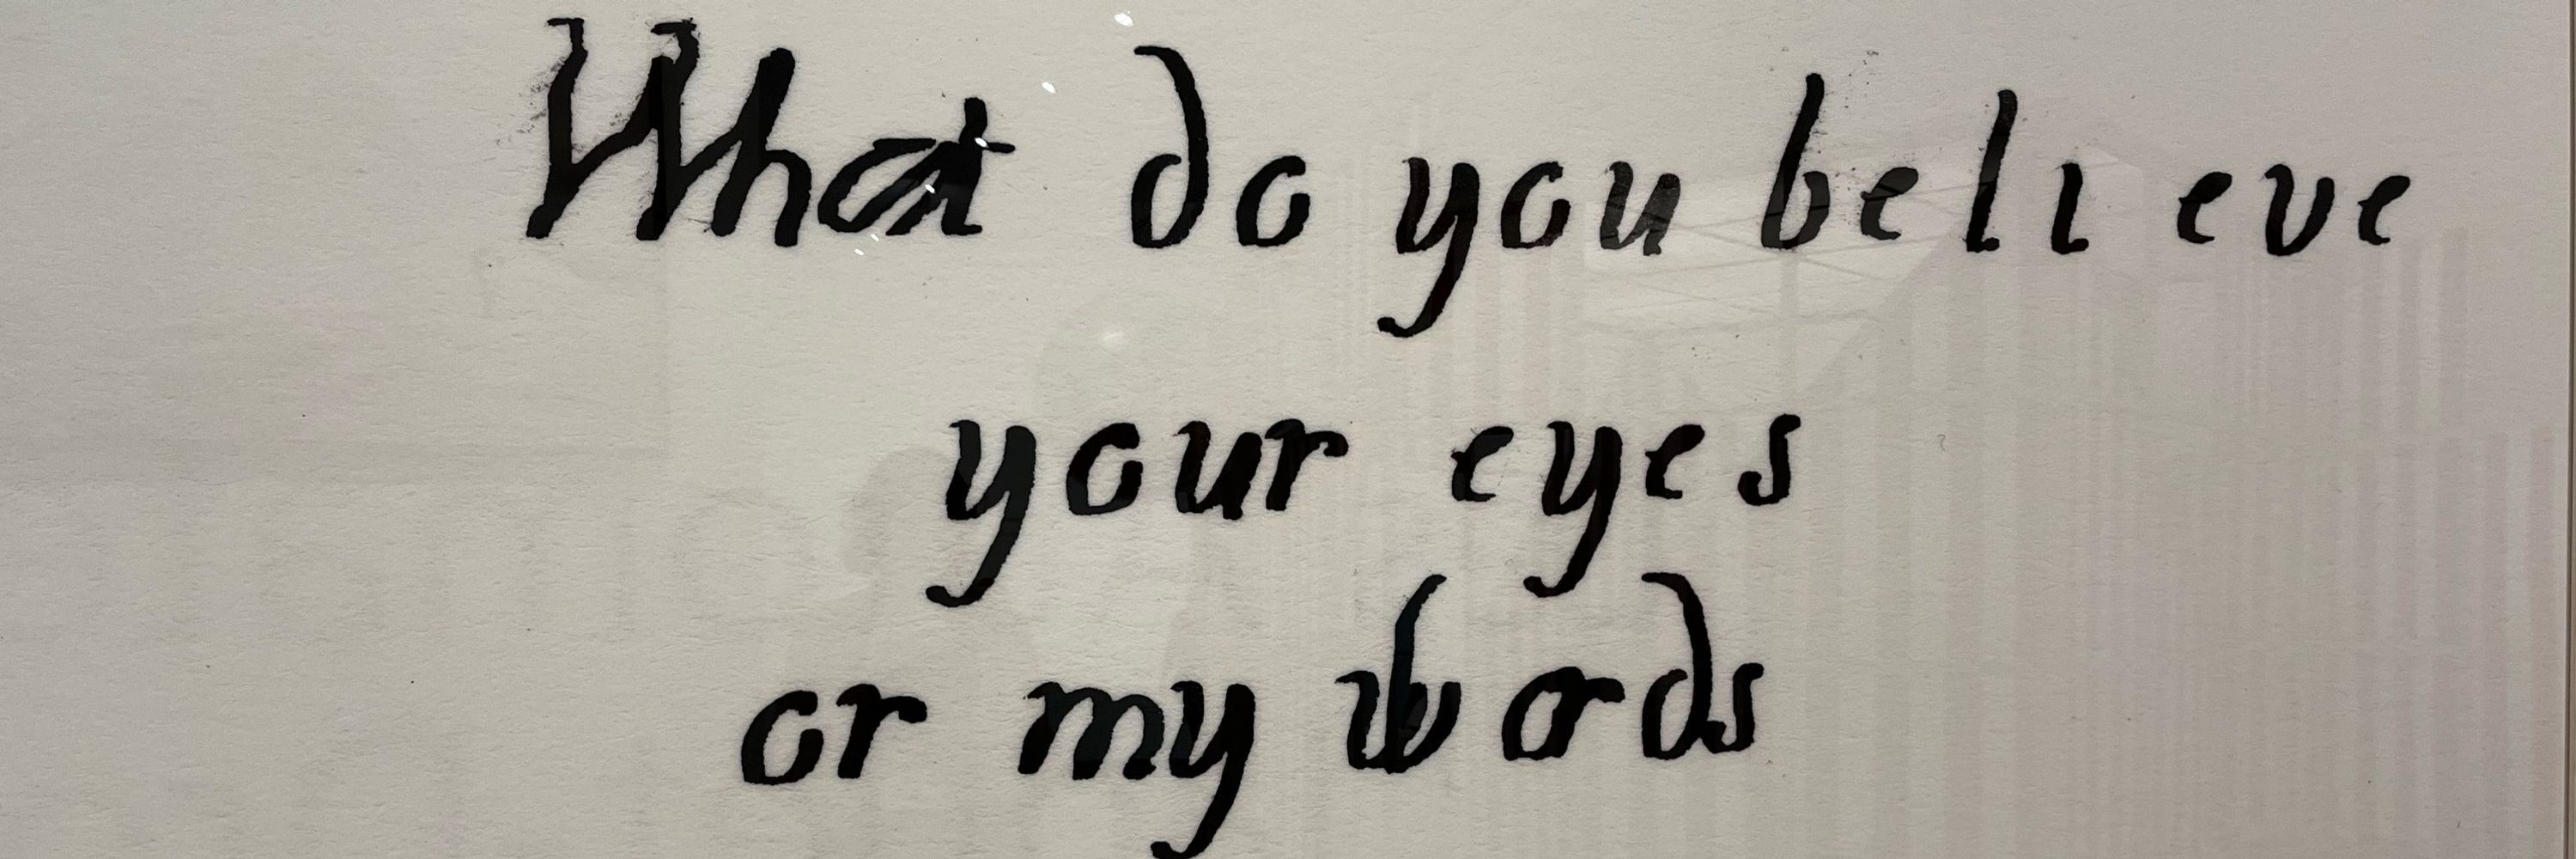 What do you believe
your eyes
or my words